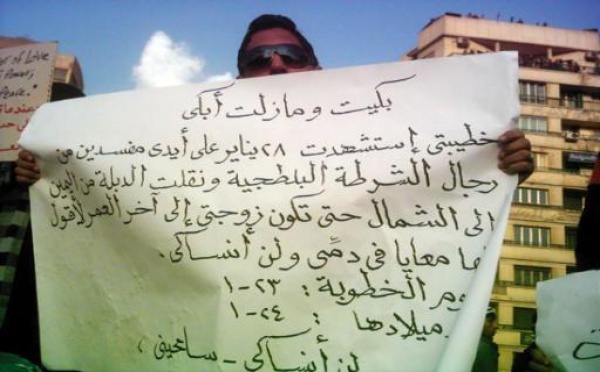 بكيت ومازلت أبكى
خطيبتى إستشهدت ٢٨ يناير على أيدى مفسدين من
رجال الشرطة البلطجية ونقلت الدبلة من اليمين
إلى الشمال حتى تكون زوجتى إلى آخر العمر لأقول
معايا فى دمى ولن أنساكى.
يوم الخطوبة : ٢٣-١
ميلادها : ٢٤-١
لن أنساكى - سامحينى
of Love
Power,
Peace."
عندما